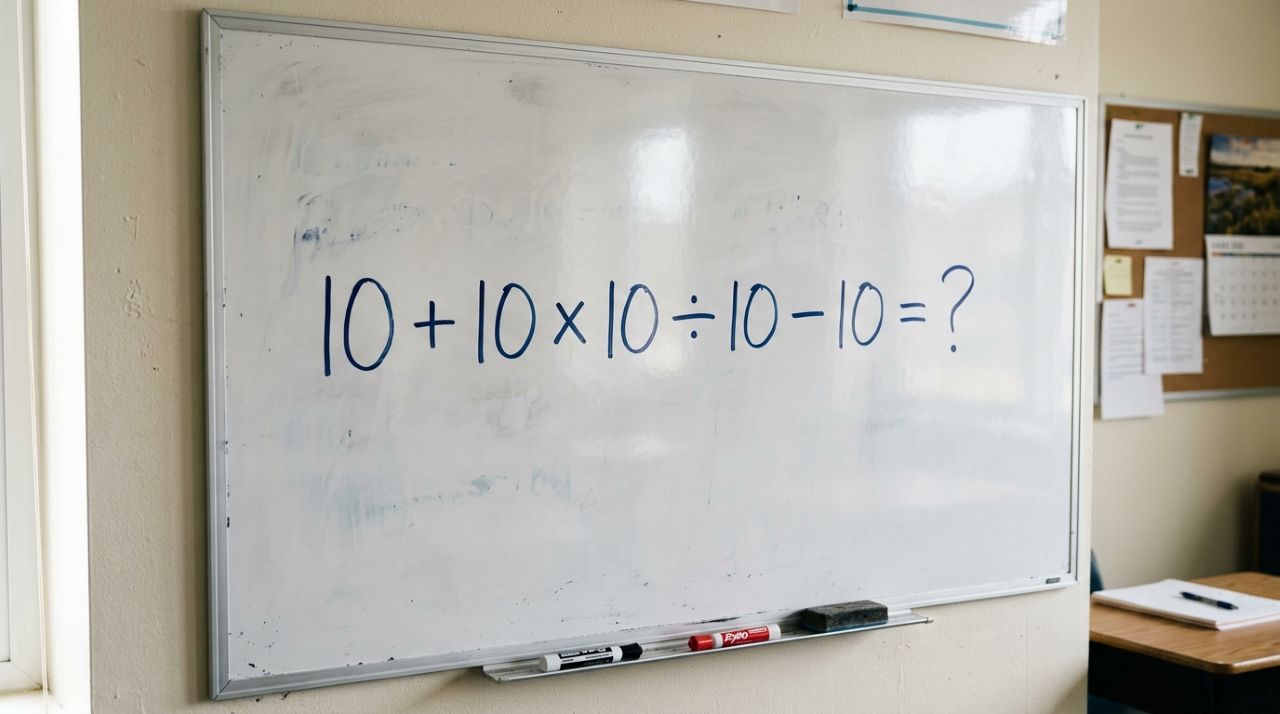 10 + 10 × 10 ÷ 10 − 10 = ?
EXPO